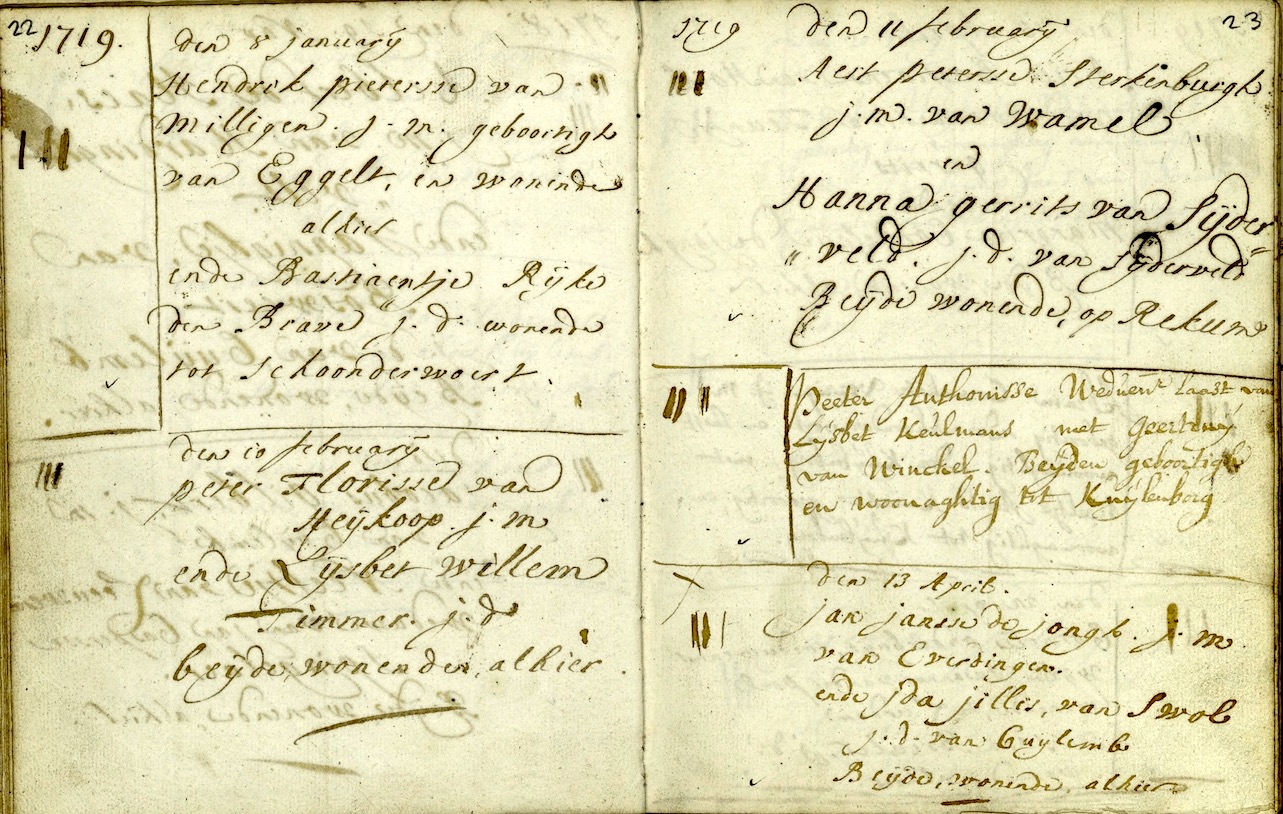 22
1719.
den 8 januarij
Hendrik pietersse van
Milligen. j. m. geboortigh
van Eggelt, en woninde
alhier
ende Bastiaentje Rijke
den Brave j. d. wonende
tot Schoonderwoert.
den 10 february
peter Florisse van
Heijkoop. j. m
ende Lijsbet willem
Timmer. j. d
beijde, wonenden, alhier
23
1719
den 11 february
Aert petersse Sterkenburgh
j. m. van Wamel
en
Hanna gerrits van Sijder„
„veld. j. d. van Sijderveld
Beijde wonende, op Rekum
Peeter Anthonisse Weduenr laast van
Lijsbet Keulmans met Geertruij
van Winckel. Beijden geboortigh
en woonaghtig tot Kuijlenborg
den 13 April.
jan janse de jongh. j. m
van Everdingen.
ende jda jillis, van Swol
j. d. van Cuylemb
Beijde, wonende, alhier